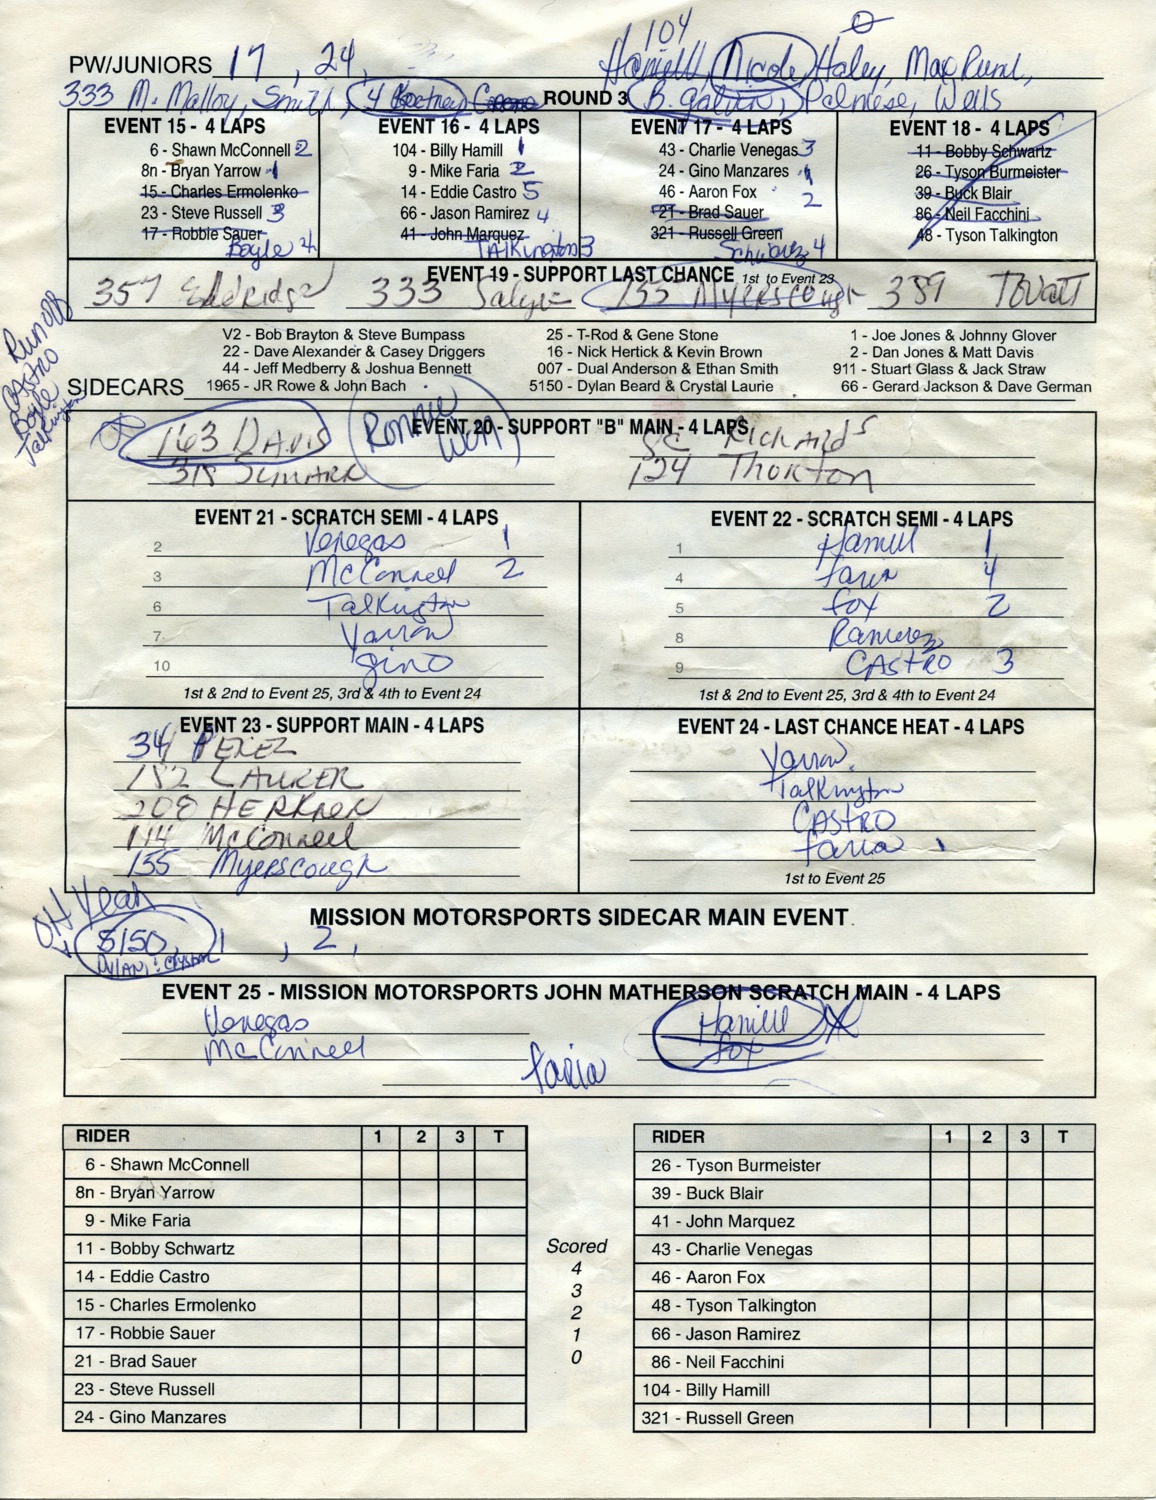 104
PW/JUNIORS 17, 24, Hamill, Nicole Haley, MacDunl,
333 M. Malloy, Smith, 4 ROUND 3 B. galvin, Palmese, Wells
EVENT 15 - 4 LAPS
6 - Shawn McConnell 2
8n - Bryan Yarrow 1
15 - Charles Ermolenko
23 - Steve Russell 3
17 - Robbie Sauer
Boyle 4
EVENT 16 - 4 LAPS
104 - Billy Hamill 1
9 - Mike Faria 2
14 - Eddie Castro 5
66 - Jason Ramirez 4
41 - John Marquez
TAlkington 3
EVENT 17 - 4 LAPS
43 - Charlie Venegas 3
24 - Gino Manzares 1
46 - Aaron Fox 2
21 - Brad Sauer
321 - Russell Green
Schwartz 4
EVENT 18 - 4 LAPS
11 - Bobby Schwartz
26 - Tyson Burmeister
39 - Buck Blair
86 - Neil Facchini
48 - Tyson Talkington
EVENT 19 - SUPPORT LAST CHANCE 1st to Event 23
357 Eldridge 333 155 Myerscough 389
Runoff
CASTRO
Boyle
Talkington
V2 - Bob Brayton & Steve Bumpass 25 - T-Rod & Gene Stone 1 - Joe Jones & Johnny Glover
22 - Dave Alexander & Casey Driggers 16 - Nick Hertick & Kevin Brown 2 - Dan Jones & Matt Davis
44 - Jeff Medberry & Joshua Bennett 007 - Dual Anderson & Ethan Smith 911 - Stuart Glass & Jack Straw
SIDECARS 1965 - JR Rowe & John Bach 5150 - Dylan Beard & Crystal Laurie 66 - Gerard Jackson & Dave German
EVENT 20 - SUPPORT "B" MAIN - 4 LAPS
163 DAVIS Ronnie Won RichArds
318 124 Thorton
EVENT 21 - SCRATCH SEMI - 4 LAPS
2 Venegas 1
3 McConnell 2
6 Talkington
7 Yarrow
10 gino
1st & 2nd to Event 25, 3rd & 4th to Event 24
EVENT 22 - SCRATCH SEMI - 4 LAPS
1 Hamill 1
4 faria 4
5 fox 2
8 Ramirez
9 CAStRO 3
1st & 2nd to Event 25, 3rd & 4th to Event 24
EVENT 23 - SUPPORT MAIN - 4 LAPS
34 PEREZ
182 LAURER
208 HERKNER
114 McConnell
155 Myerscough
EVENT 24 - LAST CHANCE HEAT - 4 LAPS
Yarrow.
Talkington
CAStRO
faria
1st to Event 25
OH Yeah
MISSION MOTORSPORTS SIDECAR MAIN EVENT
5150, 1, 2,
DYLAN : CRYSTAL
EVENT 25 - MISSION MOTORSPORTS JOHN MATHERSON SCRATCH MAIN - 4 LAPS
Venegas Hamill
McConnell fox
faria
RIDER 1 2 3 T
6 - Shawn McConnell
8n - Bryan Yarrow
9 - Mike Faria
11 - Bobby Schwartz
14 - Eddie Castro
15 - Charles Ermolenko
17 - Robbie Sauer
21 - Brad Sauer
23 - Steve Russell
24 - Gino Manzares
Scored
4
3
2
1
0
RIDER 1 2 3 T
26 - Tyson Burmeister
39 - Buck Blair
41 - John Marquez
43 - Charlie Venegas
46 - Aaron Fox
48 - Tyson Talkington
66 - Jason Ramirez
86 - Neil Facchini
104 - Billy Hamill
321 - Russell Green